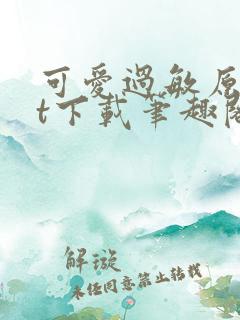 可愛過敏原
t下載筆趣閣
解漩
未经同意禁止转载